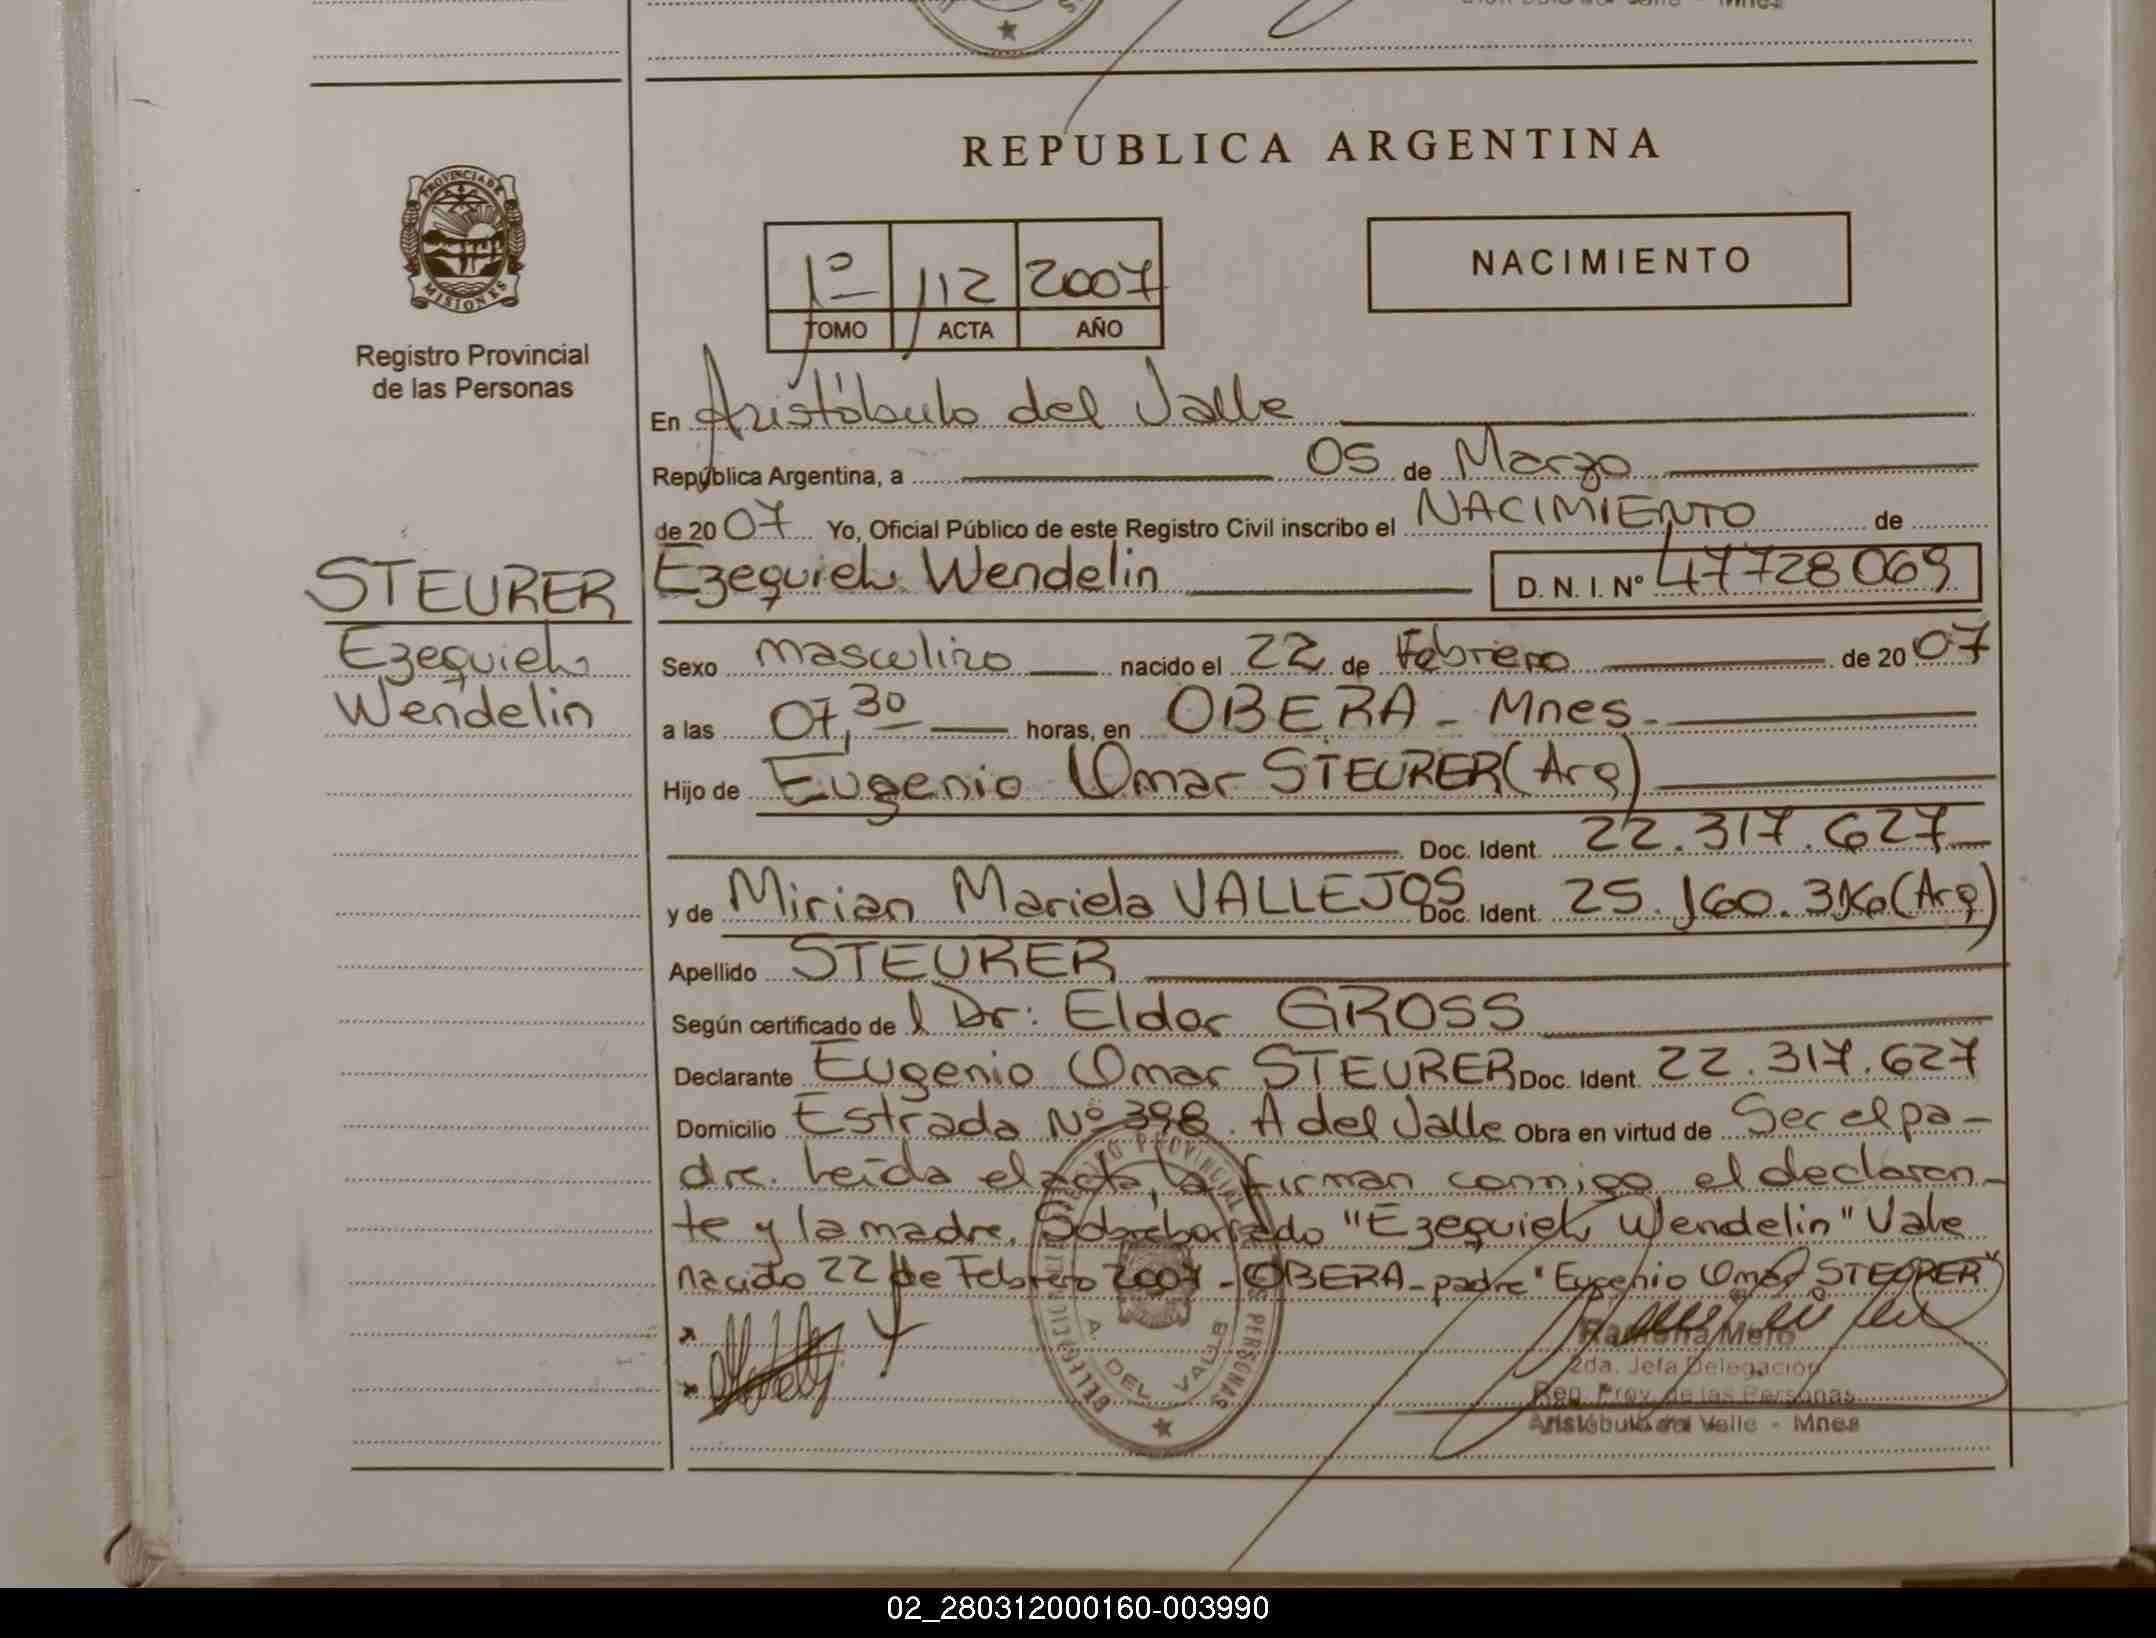 REPUBLICA ARGENTINA
PROVINCIA DE MISIONES
Registro Provincial
de las Personas
1º 112 2007
TOMO ACTA AÑO
NACIMIENTO
En Aristóbulo del Valle
República Argentina, a 05 de Marzo
de 2007 Yo, Oficial Público de este Registro Civil inscribo el NACIMIENTO de
STEURER
Ezequiel
Wendelin
Ezequiel Wendelin D. N. I. Nº 47728069
Sexo masculino nacido el 22 de Febrero de 2007
a las 07,30 horas, en OBERA - Mnes.
Hijo de Eugenio Omar STEURER (Arg)
Doc. Ident. 22.317.627
y de Mirian Mariela VALLEJOS Doc. Ident. 25.160. (Arg)
Apellido STEURER
Según certificado de l Dr: Eldor GROSS
Declarante Eugenio Omar STEURER Doc. Ident. 22.317.627
Domicilio Estrada Nº 398. A del Valle Obra en virtud de Ser el pa-
dre. Leída el acta, la firman conmigo el declaran-
te y la madre. Sobreborrado "Ezequiel Wendelin" Vale
nacido 22 de Febrero 2007 - OBERA - padre "Eugenio Omar STEURER"
REGISTRO PROVINCIAL DE LAS PERSONAS
A. DEL VALLE
Ramona Melo
2da. Jefa Delegación
Reg. Prov. de las Personas
Aristóbulo del Valle - Mnes
02_280312000160-003990